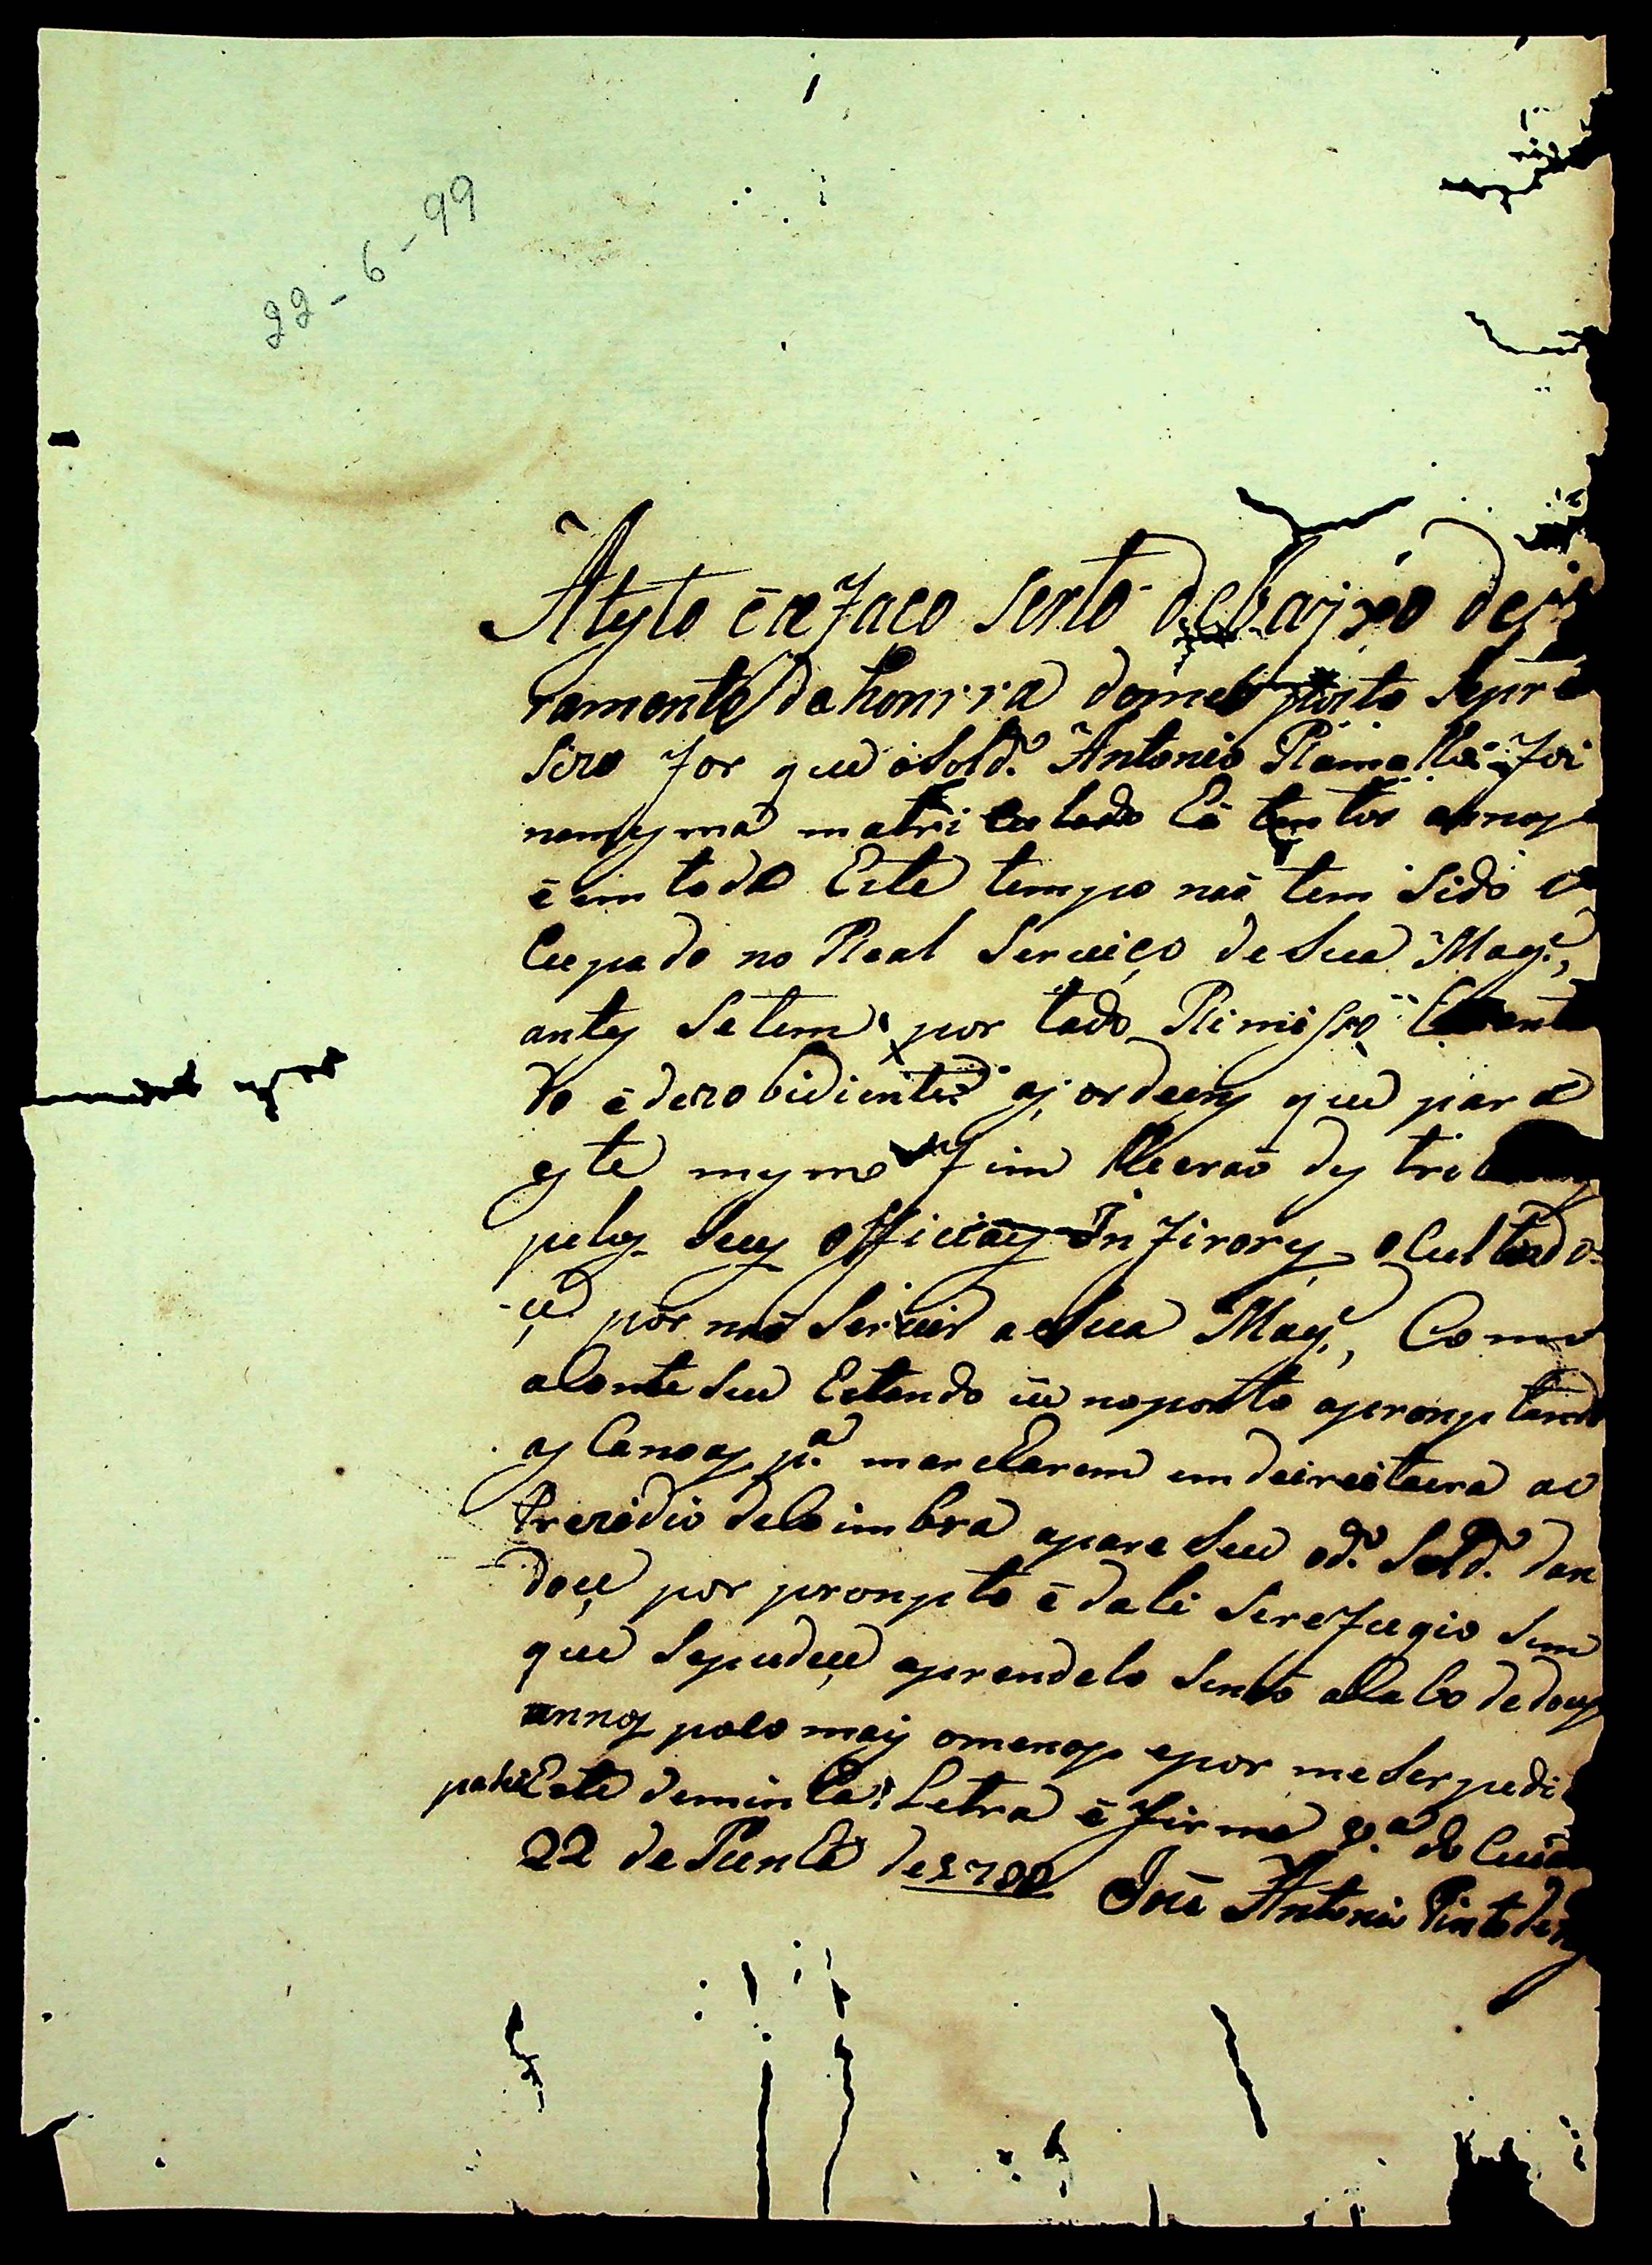 22-6-99
Atesto e afaço serto debaixo de
ramente da honrra domeu posto sepre
sizo for que o Sold.º Antonio Ramalho foi
nomesma matriculado há tantos annos
e em todo Este tempo não tem sido o
Cupado no Real Serviço de Sua Mag.e,
antes Setem portado Rimisso
do e dezobidiente as ordens que para
este mesmo fim lhe erão destri
pelos seus Officiaes Infirores, ocultando
çe por não Servir a Sua Mag.e, Como
aConteseu Estando eu noporto apromptando
as Canoas p.ª marcharem em deireitura ao
Prezidio deCoimbra apareSeu od.º Sold.º dan
doçe por prompto e dali Serefugio sem
que Sepudeçe aprendelo Senão aCabo de dous
annos polo mais omenos epor meSer pedi
paçei Este deminha Letra e firma V.ª do Cuia
22 de Junho de 1799 José Antonio Pinto de